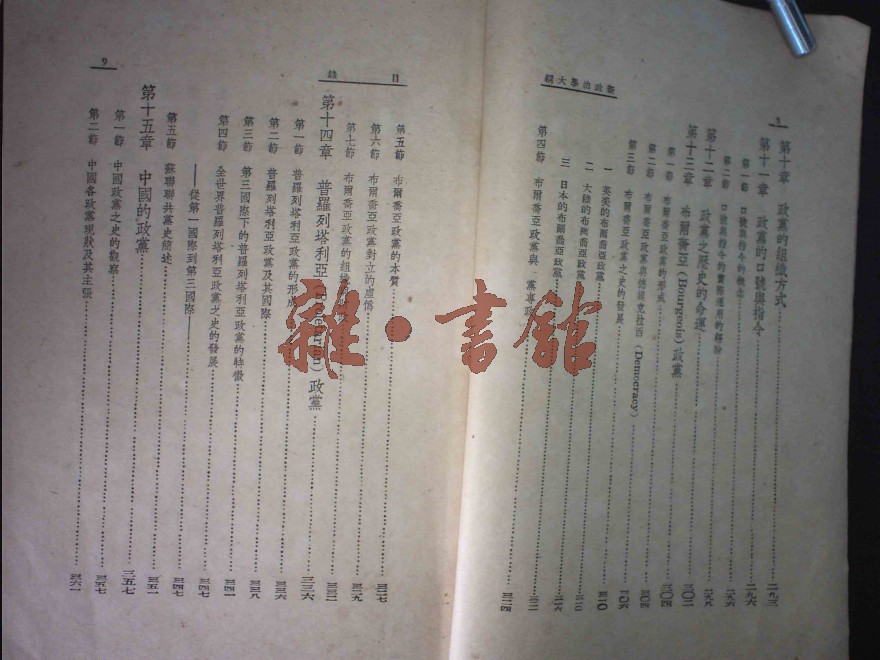 新政治學大綱
8
第十章 政黨的組織方式……二九三
第十一章 政黨的口號與指令……二九六
第一節 口號與指令的概念……二九六
第二節 口號與指令的實際運用的經驗……
第十二章 政黨之歷史的命運……二九八
第十三章 布爾喬亞(Bourgeois)政黨……三〇二
第一節 布爾喬亞政黨的形成……三〇四
第二節 布爾喬亞政黨與德謨克拉西(Democracy)
第三節 布爾喬亞政黨之史的發展
一 英美的布爾喬亞政黨……三一〇
二 大陸的布爾喬亞政黨
三 日本的布爾喬亞政黨
第四節 布爾喬亞政黨與一黨專政
目錄
9
第五節 布爾喬亞政黨的本質……三二七
第六節 布爾喬亞政黨對立的虛僞……三二九
第七節 布爾喬亞政黨的組織
第十四章 普羅列塔利亞(Proletarian)政黨……三三六
第一節 普羅列塔利亞政黨的形成……三三六
第二節 普羅列塔利亞政黨及其國際
第三節 第三國際下的普羅列塔利亞政黨的特徵……三四一
第四節 全世界普羅列塔利亞政黨之史的發展
——從第一國際到第三國際——……三四七
第五節 蘇聯聯共黨史簡述……三五一
第十五章 中國的政黨……三五七
第一節 中國政黨之史的觀察……三五七
第二節 中國各政黨現狀及其主張……三六一
雜·書館